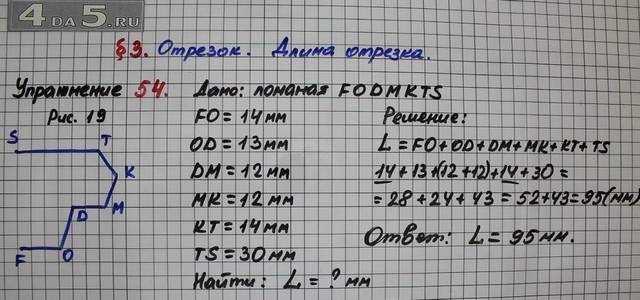 4 DA 5.RU
§3. Отрезок. Длина отрезка.
Упражнение 54.
Рис. 19
S T K M D O F
Дано: ломаная FODMKTS
FO = 14 мм
OD = 13 мм
DM = 12 мм
MK = 12 мм
KT = 14 мм
TS = 30 мм
Найти: L = ? мм
Решение:
L = FO + OD + DM + MK + KT + TS
14 + 13 + (12 + 12) + 14 + 30 =
= 28 + 24 + 43 = 52 + 43 = 95 (мм)
Ответ: L = 95 мм.